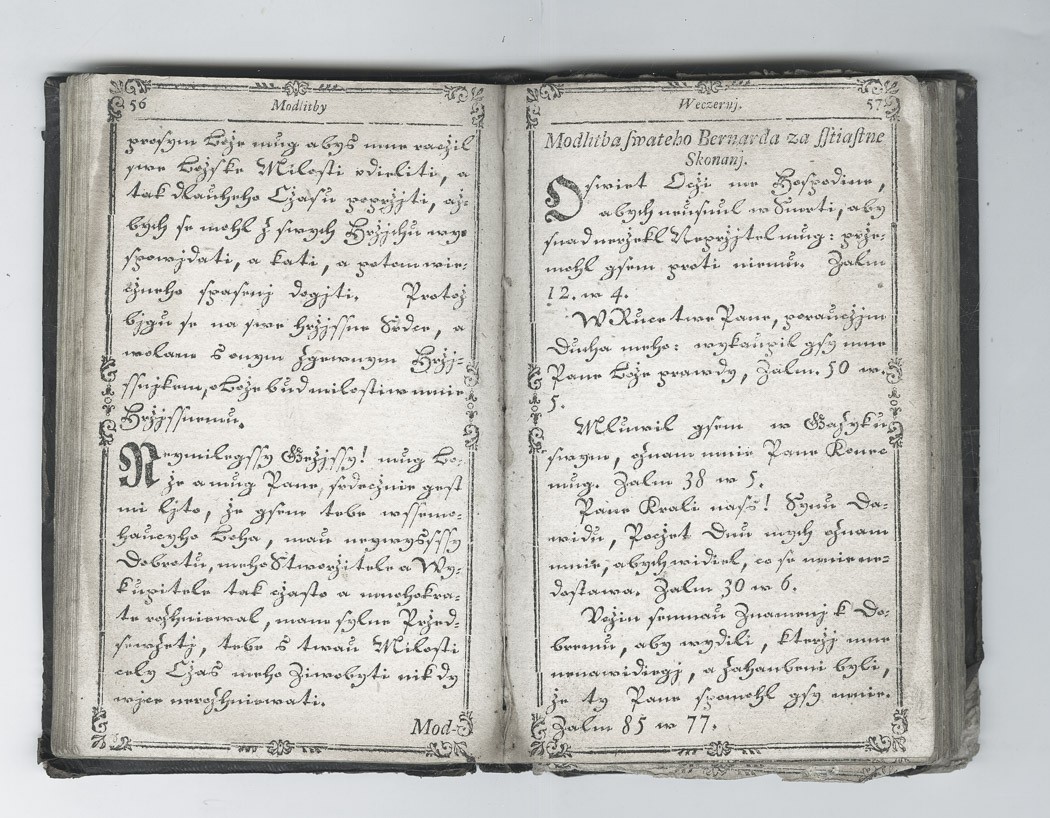 56
Modlitby
prosym Bože mug abys mne račil
swe Božske Milosti vdieliti, a
tak dlauheho Čzasu popržjti, až-
bych se mohl z swych Hržjchu wy-
spowjdati, a kati, a potom wie-
čzneho spasenj dogjti. Protož
bjgu se na swe hržjssne Srdce, a
wolam s onym zgewnym Hržj-
ssnjkem, o Bože bud milostiw mnie
Hržjssnemu.
Neymilegssy Gežjssy! mug Bo-
že a mug Pane, srdečžnie gest
mi ljto, že gsem tebe wssemo-
haucyho Boha, mau neywyssssy
Dobrotu, meho Stworžitele a Wy-
kupitele tak čžasto a mnohokra-
te rozhniewal, mam sylne Pržed-
sewzetj, tebe s twau Milosti
cely Čžas meho Žiwobyti nikdy
wjce nerozhniewati.
Mod-
Weczernj.
57
Modlitba ſwateho Bernarda za ſſtiaſtne
Skonanj.
Oswiet Očži me Hospodine,
abych neusnul w Smrti, aby
snad neržekl Nepržjtel mug: prže-
mohl gsem proti niemu. Žalm
12. w 4.
W Ruce twe Pane, poraučžjm
Ducha meho: wykaupil gsy mne
Pane Bože prawdy, Žalm. 50 w.
5.
Mluwil gsem w Gazyku
swym, oznam mnie Pane Konec
mug. Žalm 38 w 5.
Pane Krali nass! Synu Da-
widu, Počžet Dnu mych oznam
mnie, abych widiel, co se mnie ne-
dostawa. Žalm 30 w 6.
Včžin semnau Znamenj k Do-
bremu, aby wydili, kteržj mne
nenawidiegj, a zahanbeni byli,
že ty Pane spomohl gsy mnie.
Žalm 85 w 77.